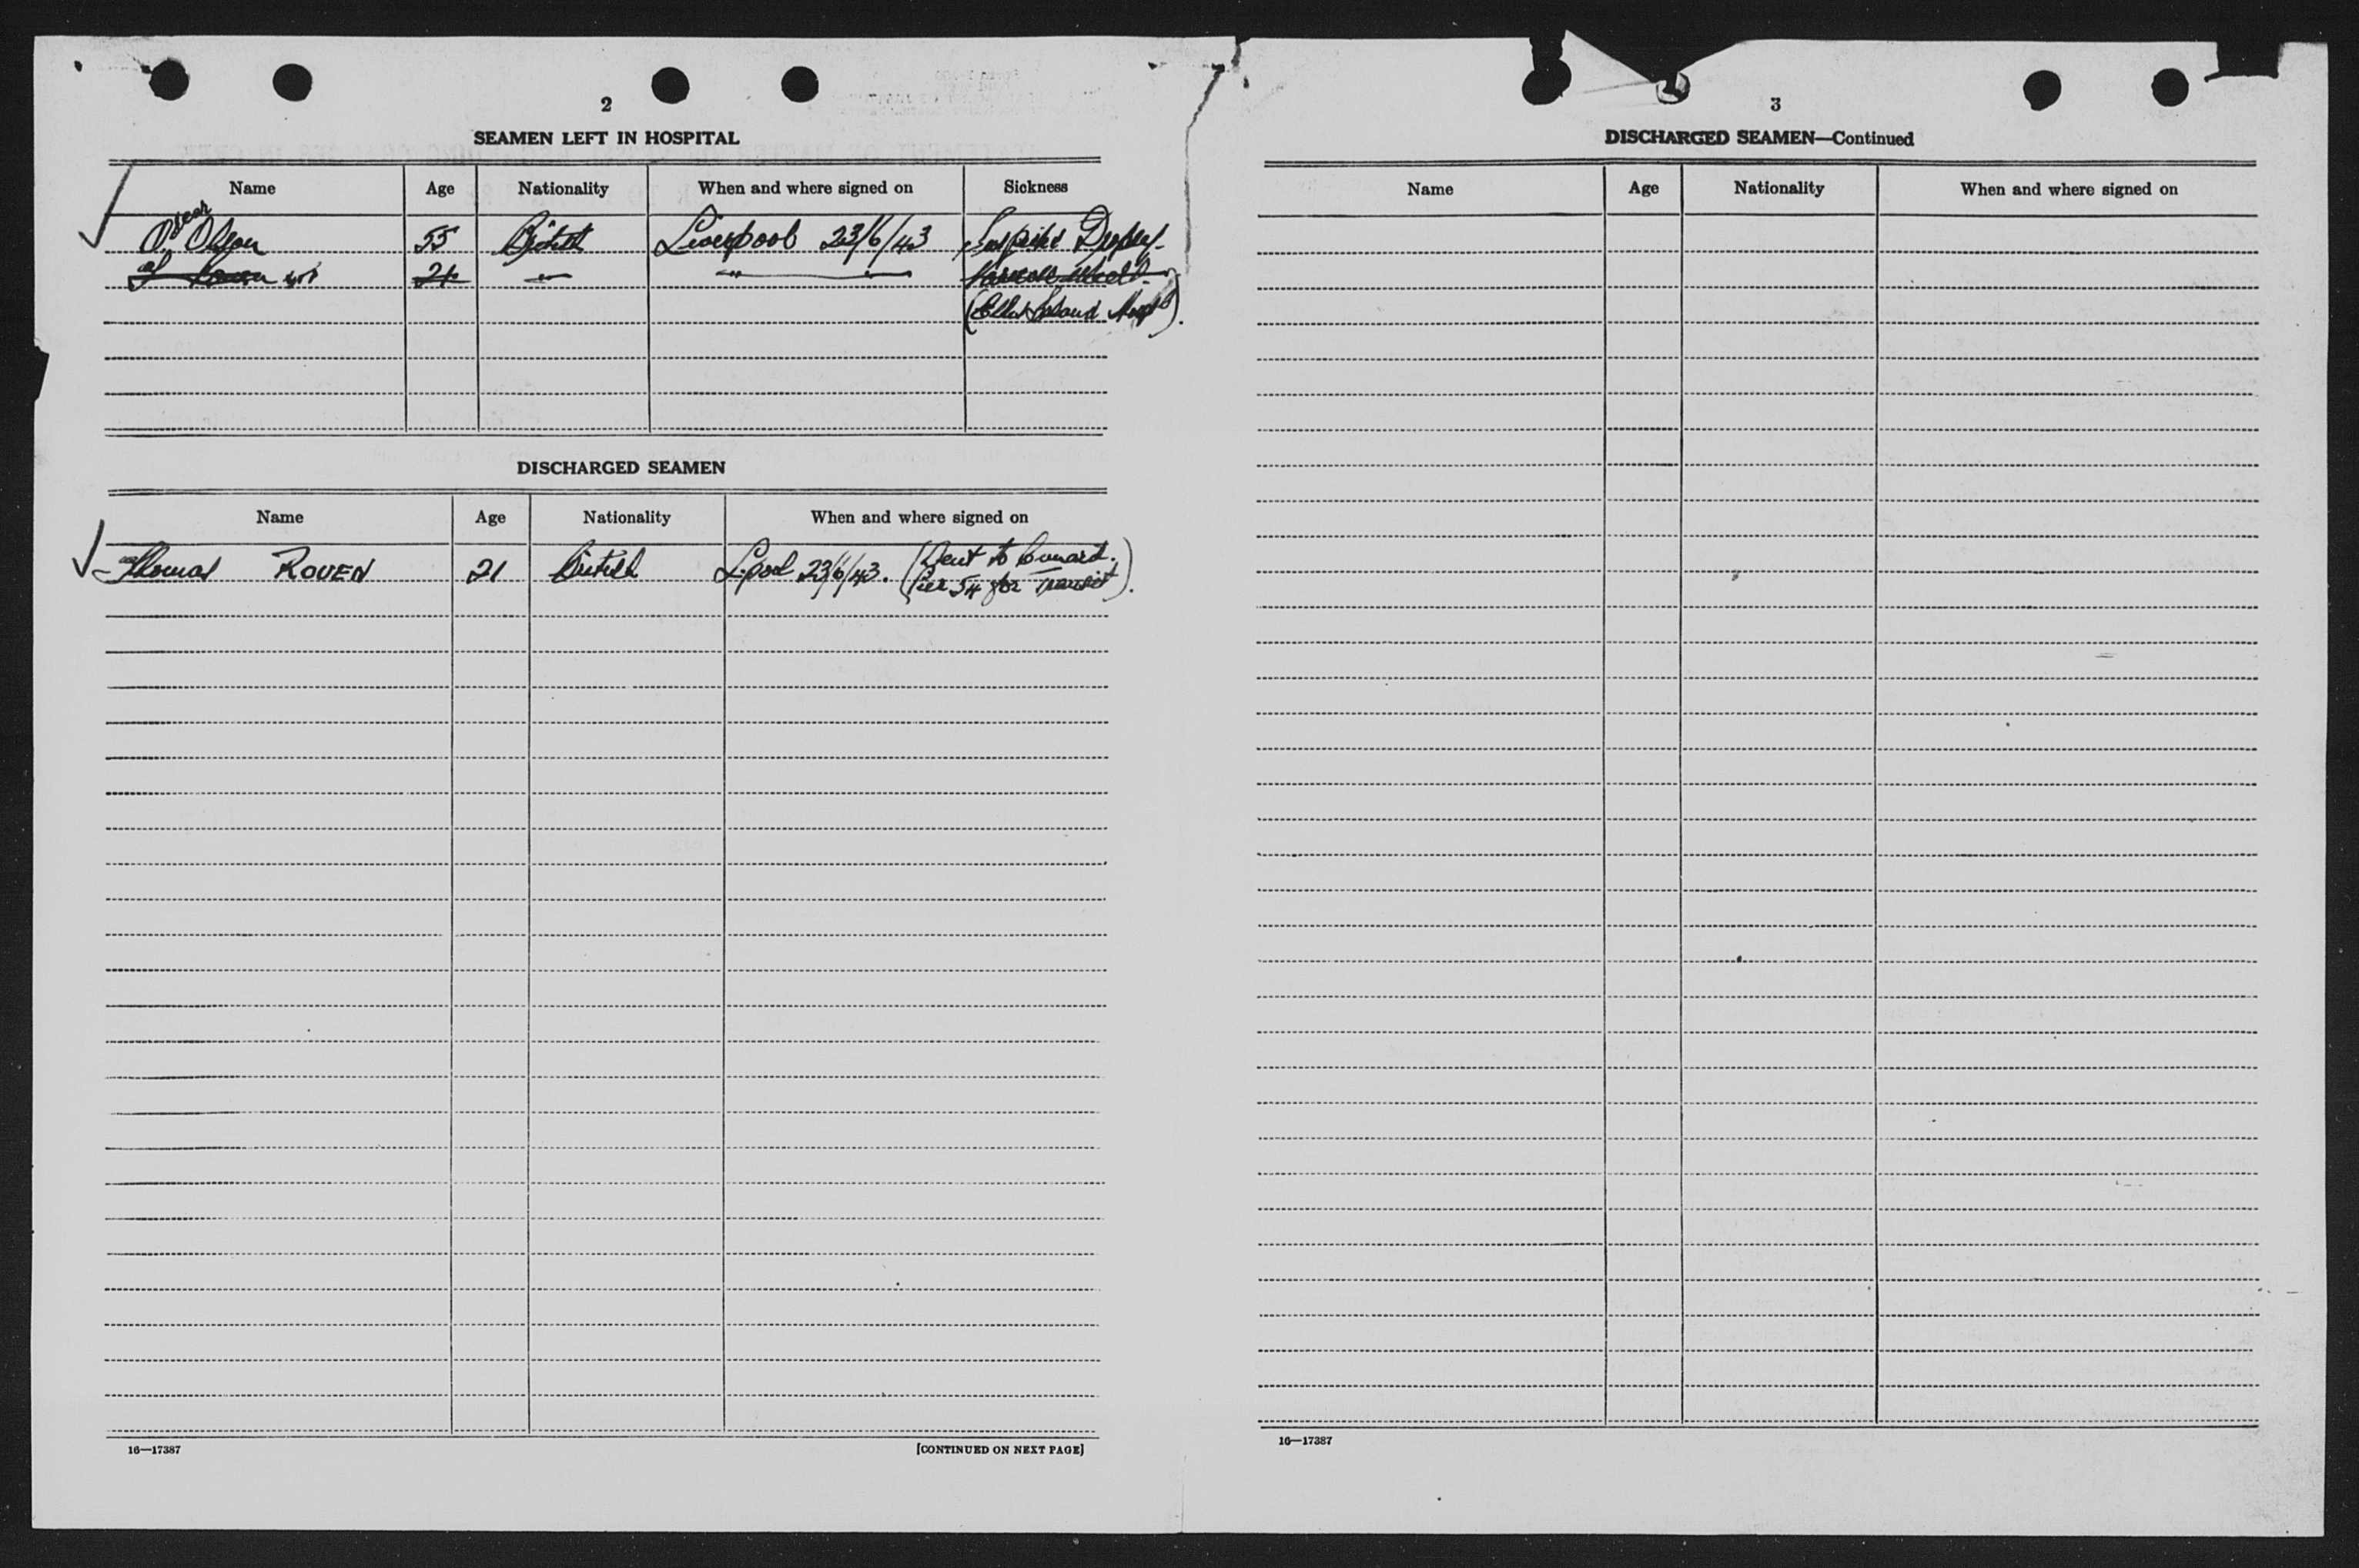 2
SEAMEN LEFT IN HOSPITAL
Name Age Nationality When and where signed on Sickness
Oscar
O. Olson 55 British Liverpool 23/6/43
21 " " "
(Ellis Island Hospt).
DISCHARGED SEAMEN
Name Age Nationality When and where signed on
Thomas ROUEN 21 British L'pool 23/6/43. (Sent to Cunard.
Pier 54 for transit).
16—17387 [CONTINUED ON NEXT PAGE]
3
DISCHARGED SEAMEN—Continued
Name Age Nationality When and where signed on
16—17387